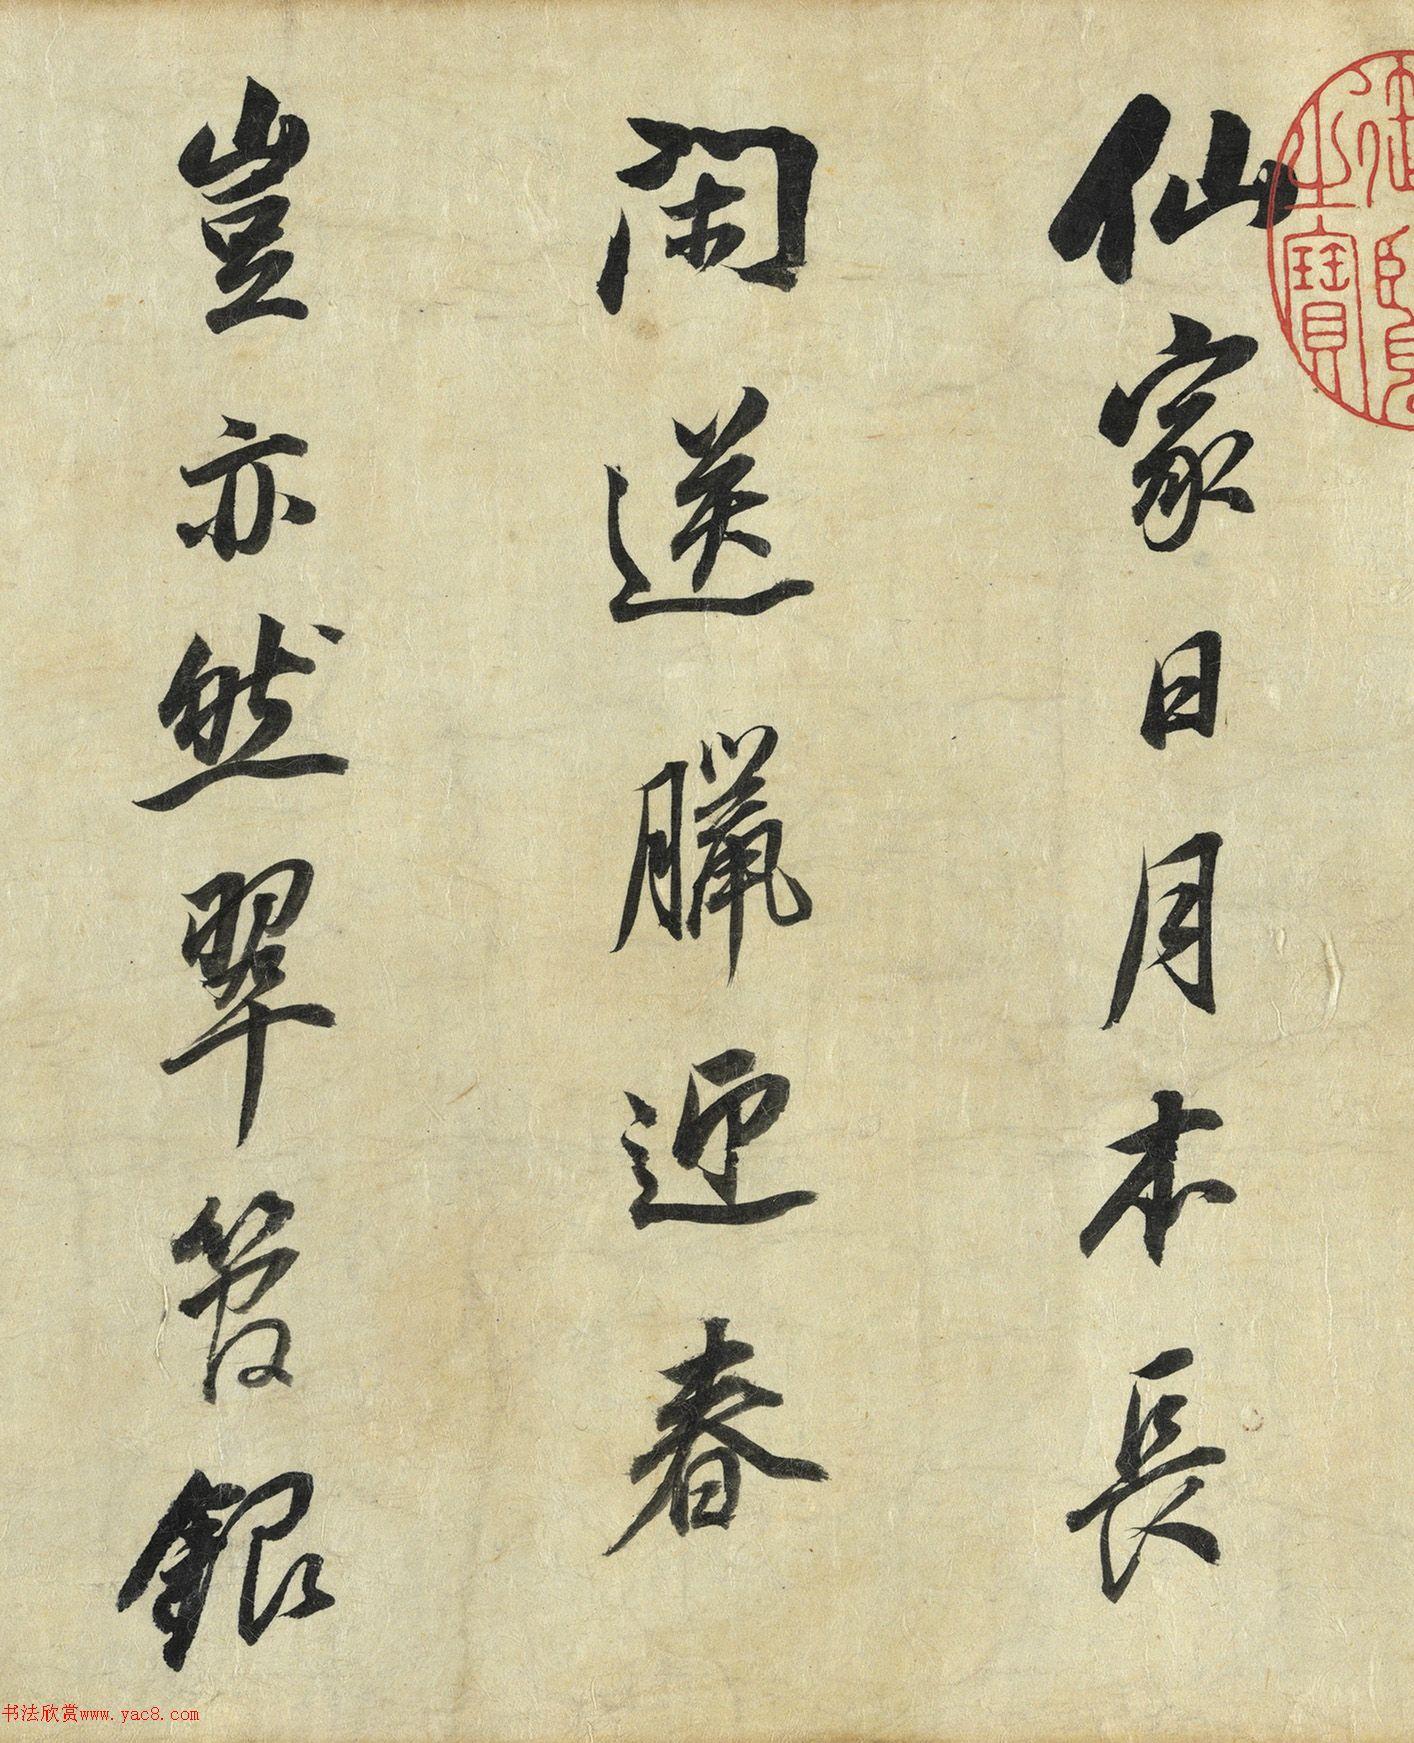 仙家日月本長
閑送臘迎春
豈亦然翠管銀
御覽
之寶
书法欣赏www.yac8.com